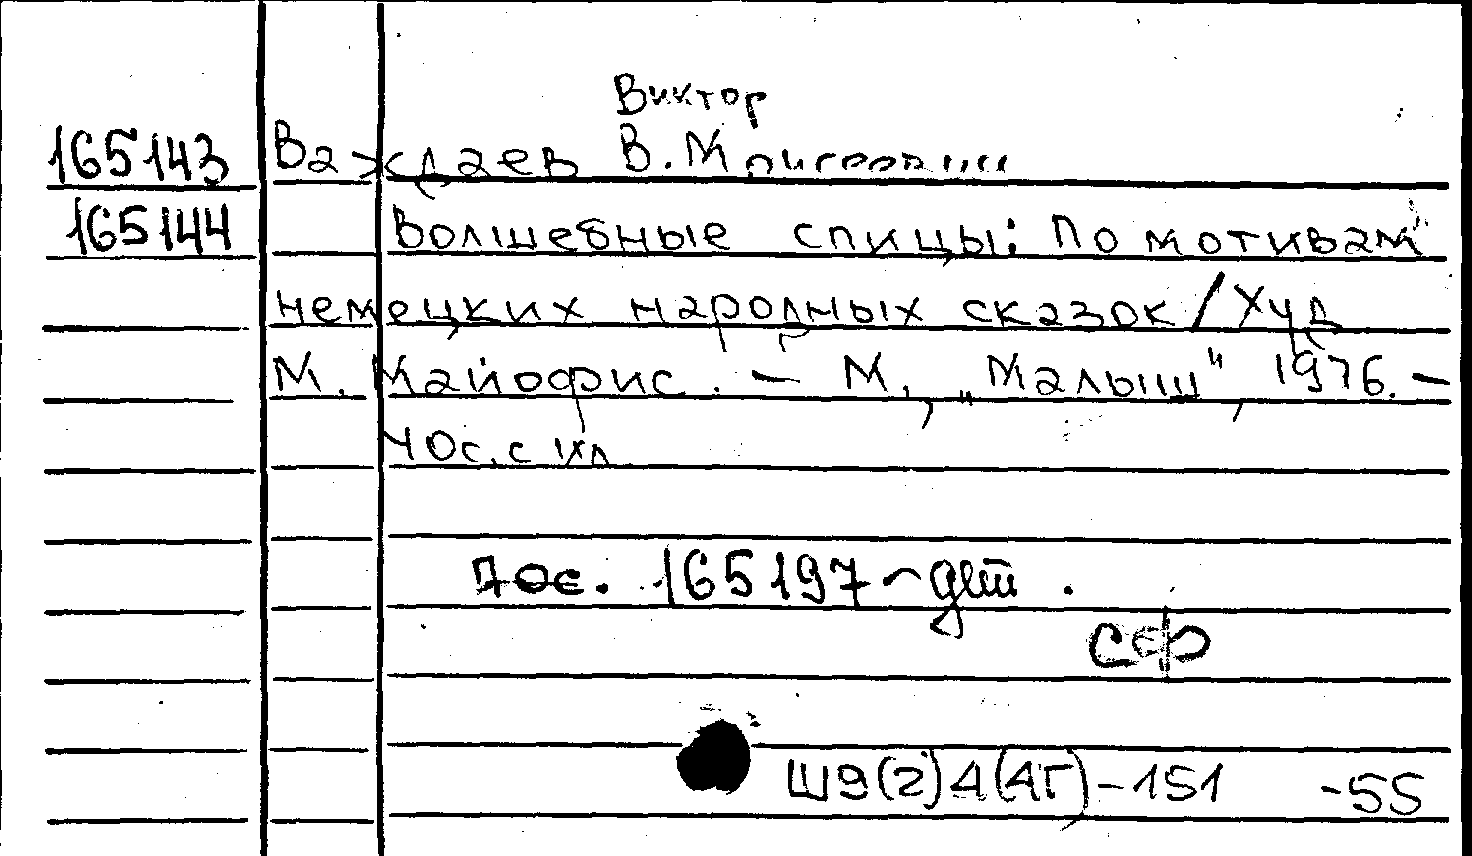 Виктор
165143 Важдаев В. М
165144 Волшебные спицы: По мотивам
немецких народных сказок / Худ
М. Майофис. - М., „Малыш", 1976. -
40с. с ил
165197 - дет.
Ш9(2)Д(4Г)-151 -55